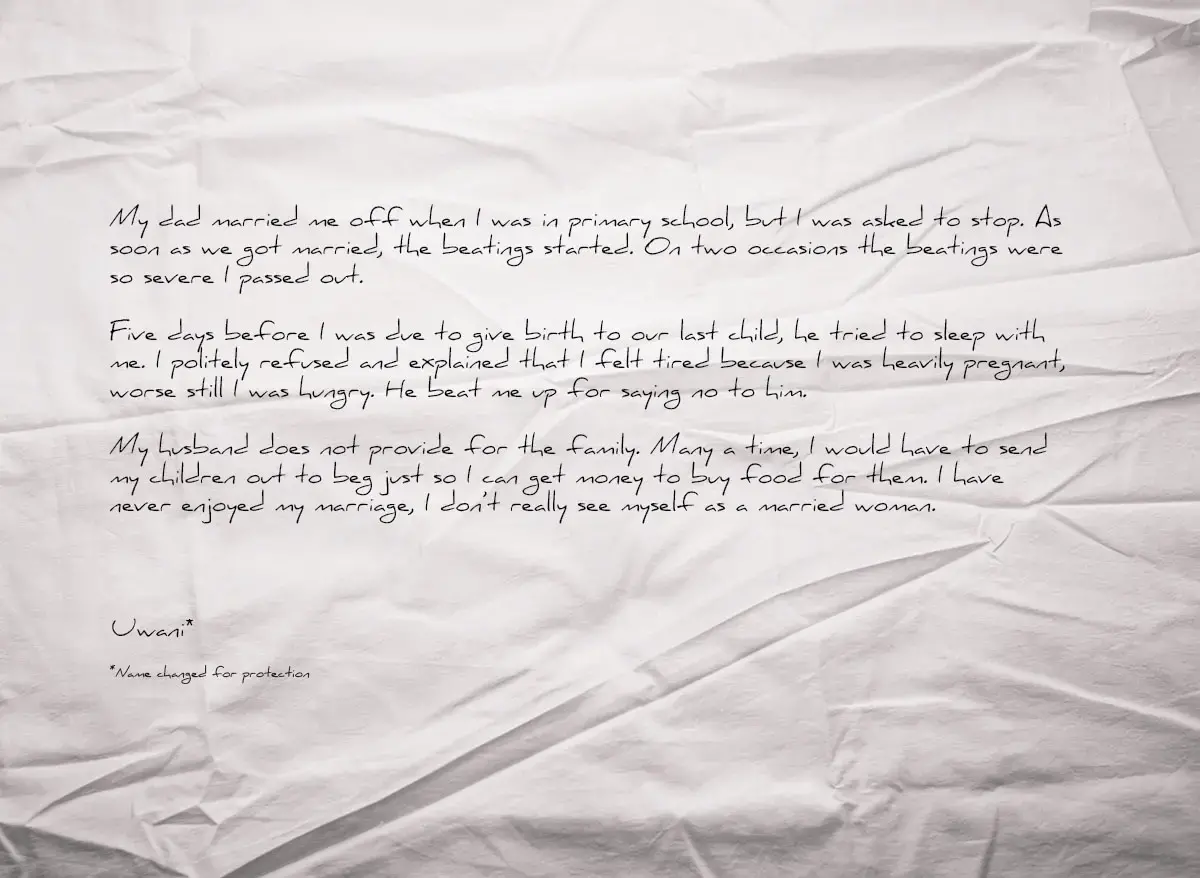 My dad married me off when I was in primary school, but I was asked to stop. As
soon as we got married, the beatings started. On two occasions the beatings were
so severe I passed out.
Five days before I was due to give birth to our last child, he tried to sleep with
me. I politely refused and explained that I felt tired because I was heavily pregnant,
worse still I was hungry. He beat me up for saying no to him.
My husband does not provide for the family. Many a time, I would have to send
my children out to beg just so I can get money to buy food for them. I have
never enjoyed my marriage, I don't really see myself as a married woman.
Uwani*
*Name changed for protection